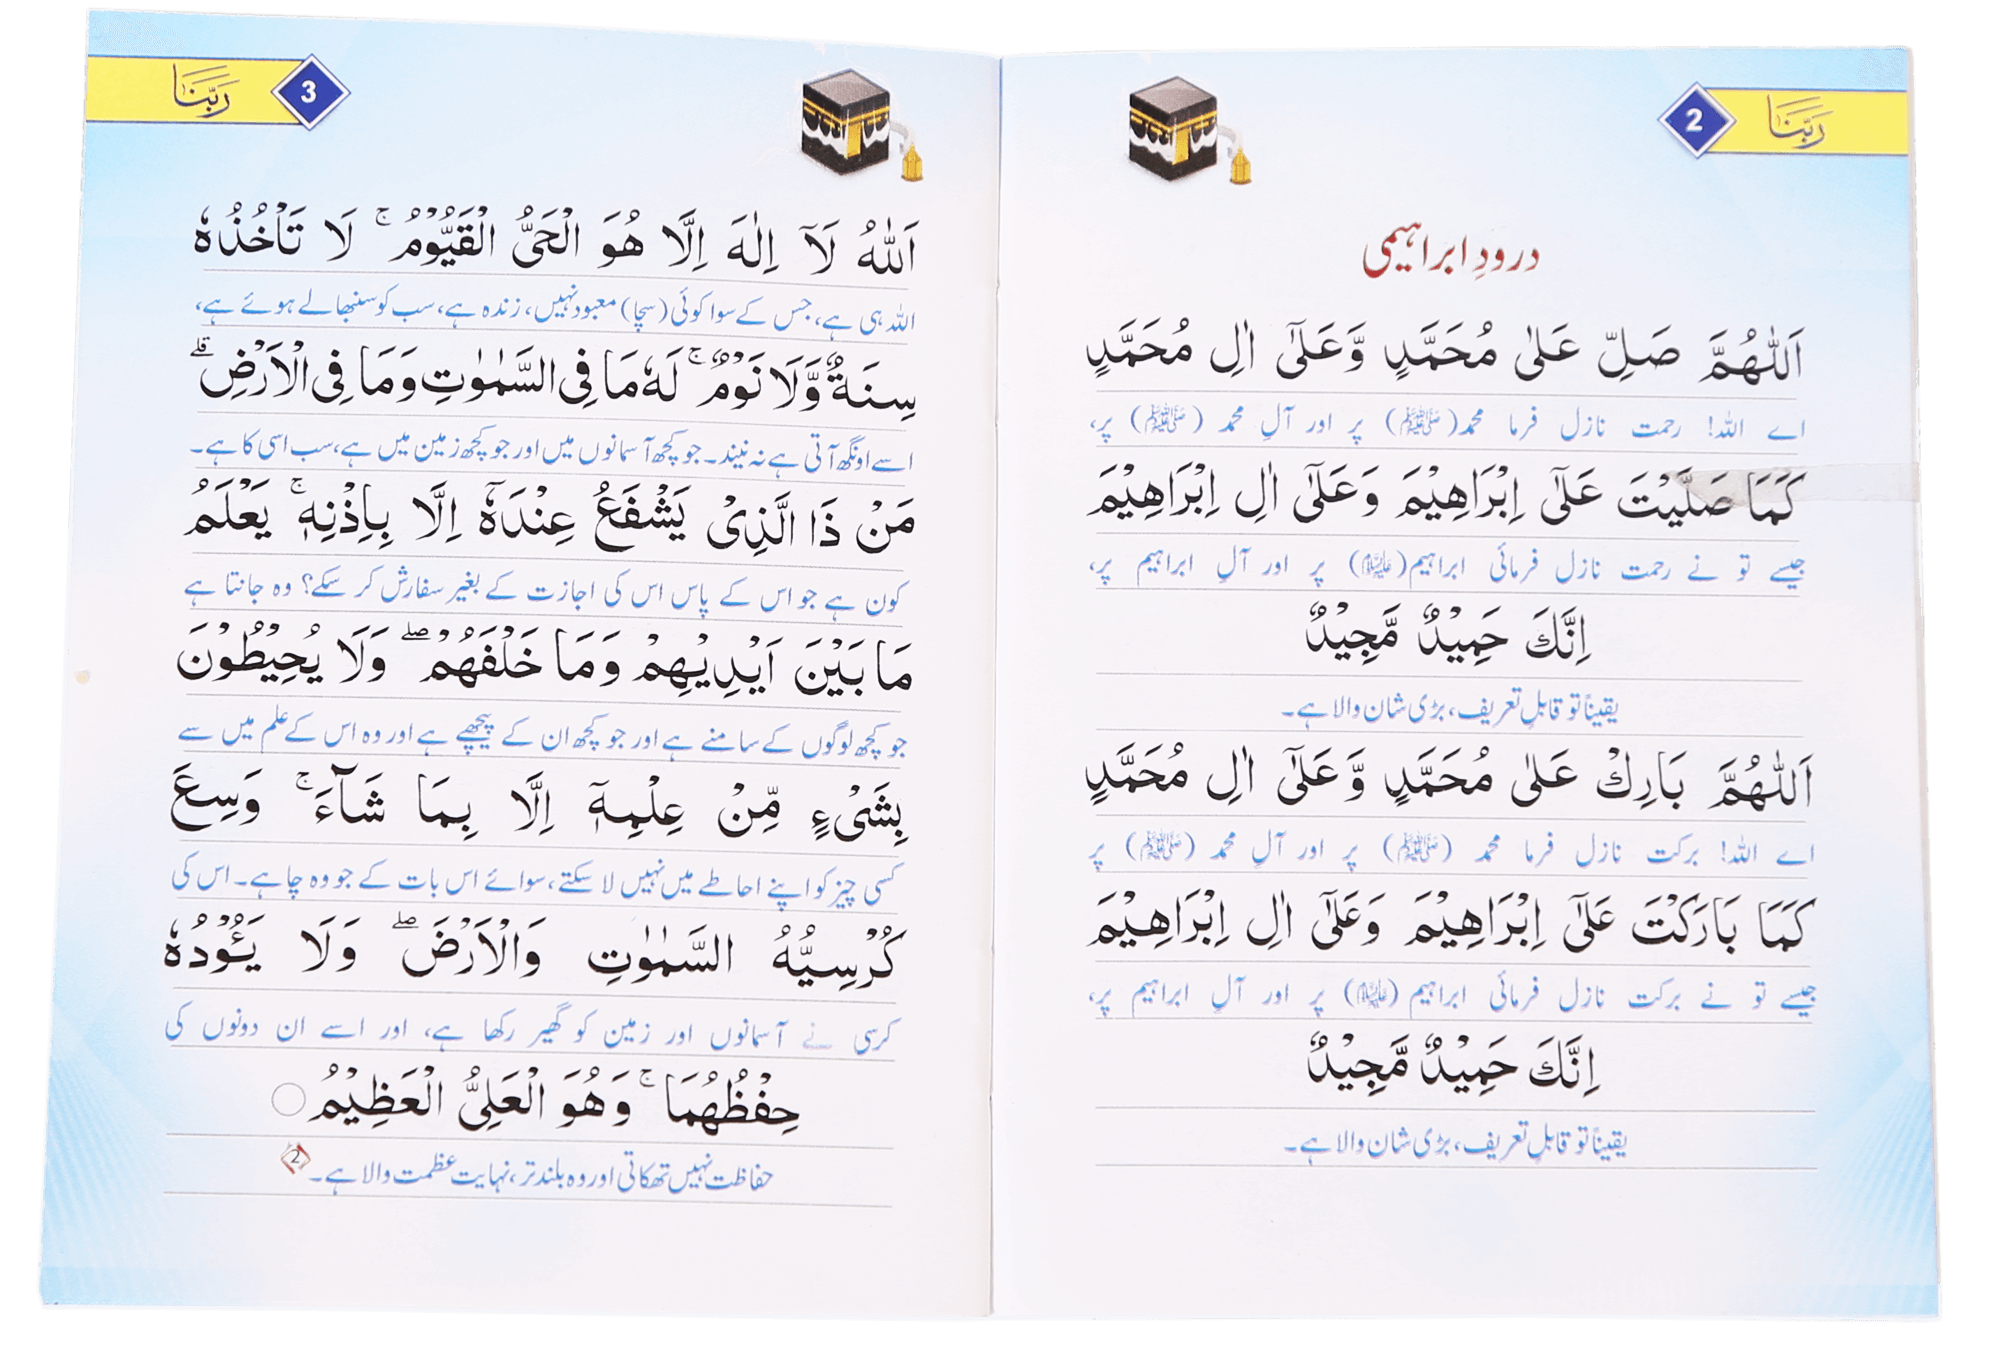 رَبَّنَا
2
درودِ ابراہیمی
اَللّٰهُمَّ صَلِّ عَلٰى مُحَمَّدٍ وَّعَلٰٓى اٰلِ مُحَمَّدٍ
اے اللہ! رحمت نازل فرما محمد(ﷺ) پر اور آلِ محمد (ﷺ) پر،
كَمَا صَلَّيْتَ عَلٰٓى اِبْرَاهِيْمَ وَعَلٰٓى اٰلِ اِبْرَاهِيْمَ
جیسے تو نے رحمت نازل فرمائی ابراہیم(علیہ السلام) پر اور آلِ ابراہیم پر،
اِنَّكَ حَمِيْدٌ مَّجِيْدٌ
یقیناً تو قابلِ تعریف، بڑی شان والا ہے۔
اَللّٰهُمَّ بَارِكْ عَلٰى مُحَمَّدٍ وَّعَلٰٓى اٰلِ مُحَمَّدٍ
اے اللہ! برکت نازل فرما محمد (ﷺ) پر اور آلِ محمد (ﷺ) پر
كَمَا بَارَكْتَ عَلٰٓى اِبْرَاهِيْمَ وَعَلٰٓى اٰلِ اِبْرَاهِيْمَ
جیسے تو نے برکت نازل فرمائی ابراہیم (علیہ السلام) پر اور آلِ ابراہیم پر،
اِنَّكَ حَمِيْدٌ مَّجِيْدٌ
یقیناً تو قابلِ تعریف، بڑی شان والا ہے۔
رَبَّنَا
3
اَللّٰهُ لَآ اِلٰهَ اِلَّا هُوَ الْحَيُّ الْقَيُّوْمُ ۚ لَا تَاْخُذُهٗ
اللہ ہی ہے، جس کے سوا کوئی (سچا) معبود نہیں، زندہ ہے، سب کو سنبھالے ہوئے ہے،
سِنَةٌ وَّلَا نَوْمٌ ۚ لَهٗ مَا فِي السَّمٰوٰتِ وَمَا فِي الْاَرْضِ ۗ
اسے اونگھ آتی ہے نہ نیند۔ جو کچھ آسمانوں میں اور جو کچھ زمین میں ہے، سب اسی کا ہے۔
مَنْ ذَا الَّذِيْ يَشْفَعُ عِنْدَهٗٓ اِلَّا بِاِذْنِهٖ ۚ يَعْلَمُ
کون ہے جو اس کے پاس اس کی اجازت کے بغیر سفارش کر سکے؟ وہ جانتا ہے
مَا بَيْنَ اَيْدِيْهِمْ وَمَا خَلْفَهُمْ ۖ وَلَا يُحِيْطُوْنَ
جو کچھ لوگوں کے سامنے ہے اور جو کچھ ان کے پیچھے ہے اور وہ اس کے علم میں سے
بِشَيْءٍ مِّنْ عِلْمِهٖٓ اِلَّا بِمَا شَآءَ ۚ وَسِعَ
کسی چیز کو اپنے احاطے میں نہیں لا سکتے، سوائے اس بات کے جو وہ چاہے۔ اس کی
كُرْسِيُّهُ السَّمٰوٰتِ وَالْاَرْضَ ۖ وَلَا يَـُٔوْدُهٗ
کرسی نے آسمانوں اور زمین کو گھیر رکھا ہے، اور اسے ان دونوں کی
حِفْظُهُمَا ۚ وَهُوَ الْعَلِيُّ الْعَظِيْمُ ○
حفاظت نہیں تھکاتی اور وہ بلند تر، نہایت عظمت والا ہے۔ 2